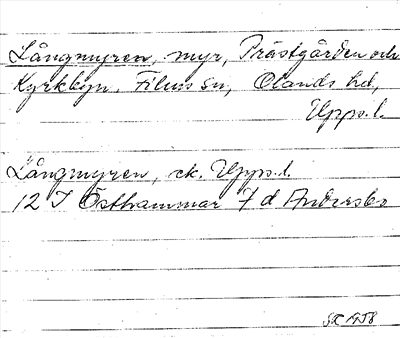 Långmyren, myr, Prästgården och
Kyrkbyn, Films sn, Olands hd,
Upps. l.
Långmyren, ek. Upps. l.
12 I Östhammar 7 d Andersbo
1958